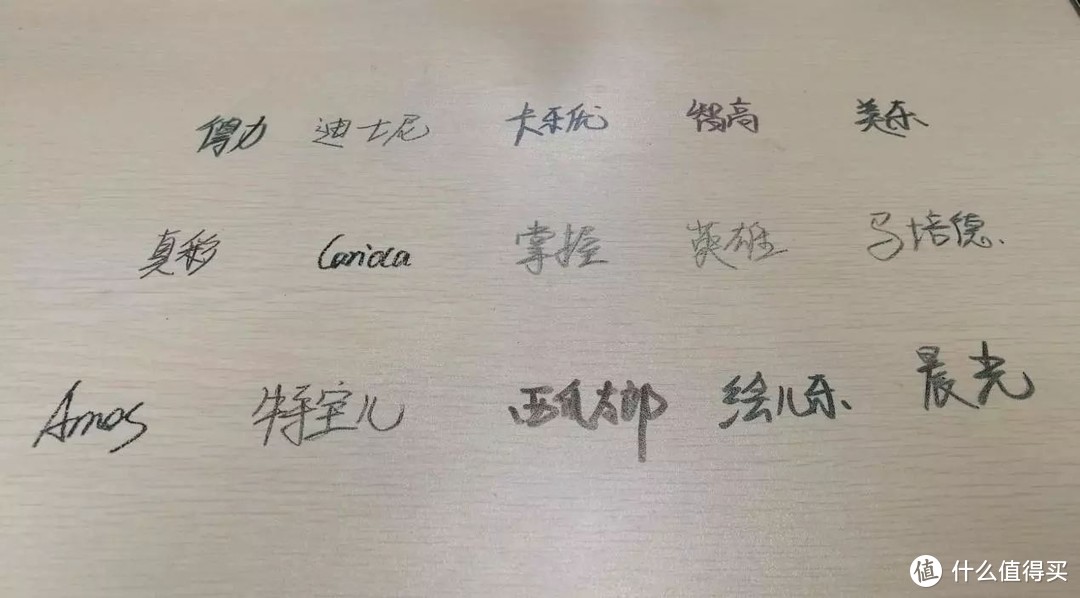 得力 迪士尼 卡乐优 智高 美乐
真彩 Carioca 掌握 英雄 马培德.
Amos 特宝儿 西瓜太郎 绘儿乐 晨光
值 什么值得买